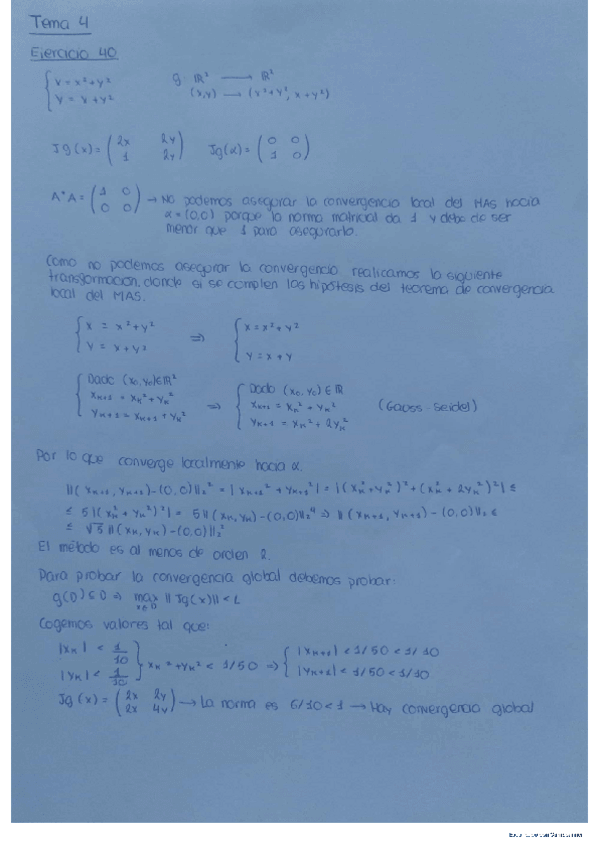 Tema 4
Ejercicio 40
{ x = x² + y²
y = x + y²
g: ℝ² → ℝ²
(x,y) → (x²+y², x+y²)
Jg(x) = ( 2x 2y
1 2y )
Jg(α) = ( 0 0
1 0 )
A*A = ( 1 0
0 0 ) → No podemos asegurar la convergencia local del MAS hacia
α = (0,0) porque la norma matricial da 1 y debe de ser
menor que 1 para asegurarlo.
Como no podemos asegurar la convergencia realicamos la siguiente
transformación, donde si se complen las hipótesis del teorema de convergencia
local del MAS.
{ x = x² + y²
y = x + y²
⇒ { x = x² + y²
y = x + y
{ Dado (x₀, y₀) ∈ ℝ²
xₖ₊₁ = xₖ² + yₖ²
yₖ₊₁ = xₖ₊₁ + yₖ²
⇒ { Dado (x₀, y₀) ∈ ℝ
xₖ₊₁ = xₖ² + yₖ²
yₖ₊₁ = xₖ² + 2yₖ²
(Gauss-Seidel)
Por lo que converge localmente hacia α.
||(xₖ₊₁, yₖ₊₁) - (0,0)||₂² = |xₖ₊₁² + yₖ₊₁²| = |(xₖ² + yₖ²)² + (xₖ² + 2yₖ²)²| ≤
≤ 5|(xₖ² + yₖ²)²| = 5||(xₖ, yₖ) - (0,0)||₂⁴ ⇒ ||(xₖ₊₁, yₖ₊₁) - (0,0)||₂ ≤
≤ √5||(xₖ, yₖ) - (0,0)||₂²
El método es al menos de orden 2.
Para probar la convergencia global debemos probar:
g(D) ⊆ D ⇒ max x∈D ||Jg(x)|| < L
Cogemos valores tal que:
|xₖ| < 1/10
|yₖ| < 1/10 } xₖ² + yₖ² < 1/50 ⇒ { |xₖ₊₁| < 1/50 < 1/10
|yₖ₊₁| < 1/50 < 1/10
Jg(x) = ( 2x 2y
2x 4y ) → La norma es 6/10 < 1 → Hay convergencia global